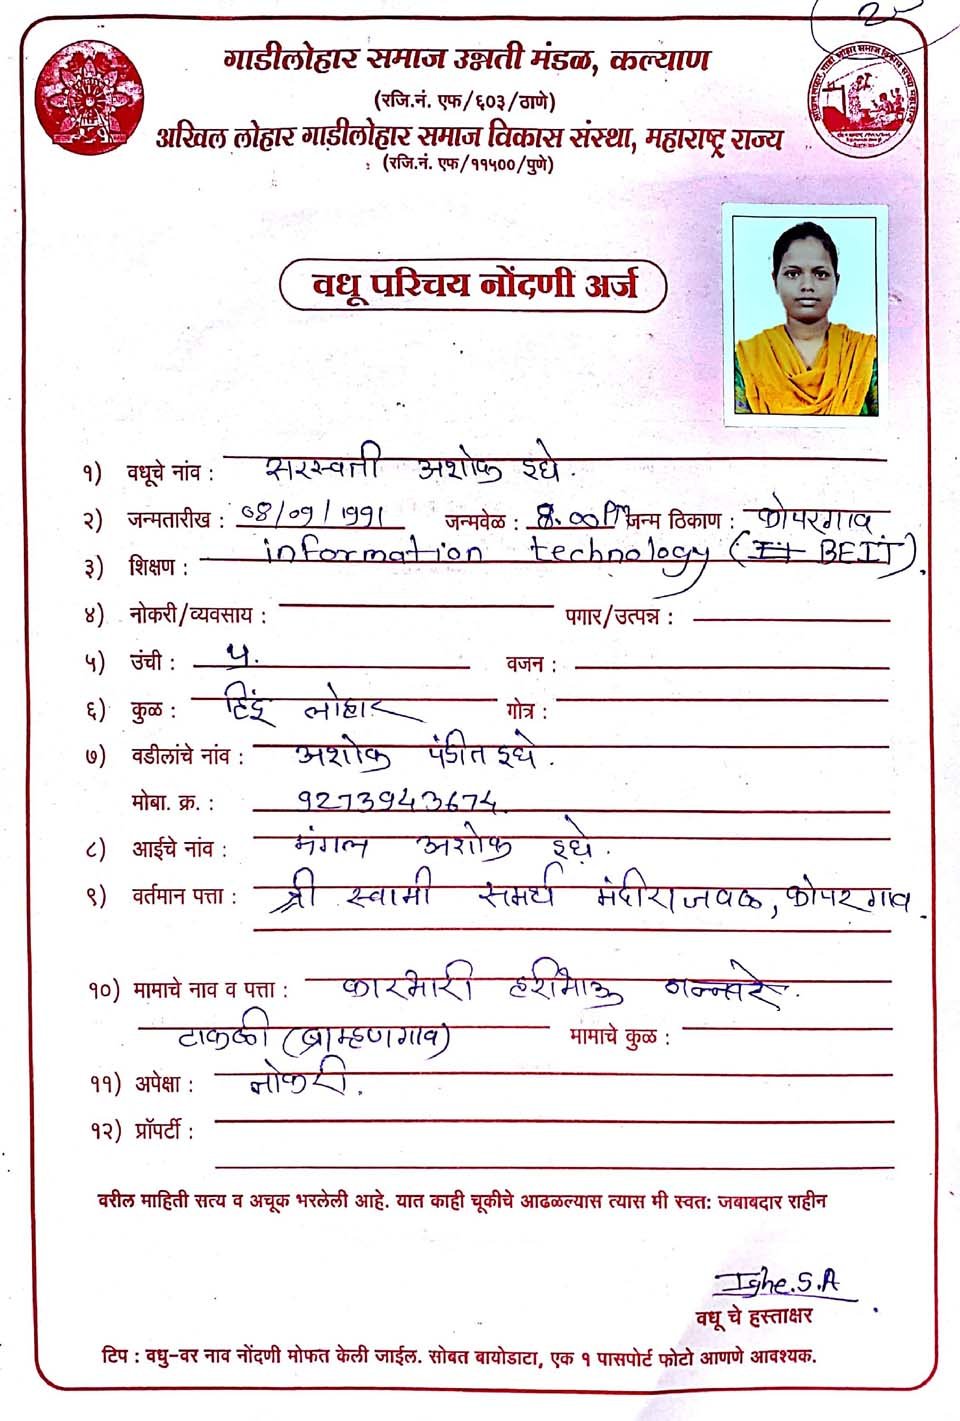 २५
गाडीलोहार समाज उन्नती मंडळ, कल्याण
(रजि.नं. एफ/६०३/ठाणे)
अखिल लोहार गाडीलोहार समाज विकास संस्था, महाराष्ट्र राज्य
(रजि.नं. एफ/११५००/पुणे)
वधू परिचय नोंदणी अर्ज
१) वधूचे नांव : सरस्वती अशोक इघे.
२) जन्मतारीख : ०8/०9/1991 जन्मवेळ : 8.00 PM जन्म ठिकाण : कोपरगाव
३) शिक्षण : information technology ( BEIT).
४) नोकरी/व्यवसाय : पगार/उत्पन्न :
५) उंची : ५. वजन :
६) कुळ : हिंदू लोहार गोत्र :
७) वडीलांचे नांव : अशोक पंडीत इघे.
मोबा. क्र. : 9273943674
८) आईचे नांव : मंगल अशोक इघे.
९) वर्तमान पत्ता : श्री स्वामी समर्थ मंदीराजवळ, कोपरगाव.
१०) मामाचे नाव व पत्ता : कारभारी हरीभाऊ
टाकळी (ब्राम्हणगाव) मामाचे कुळ :
११) अपेक्षा : नोकरी.
१२) प्रॉपर्टी :
वरील माहिती सत्य व अचूक भरलेली आहे. यात काही चूकीचे आढळल्यास त्यास मी स्वत: जबाबदार राहीन
Ighe.S.A
वधू चे हस्ताक्षर
टिप : वधु-वर नाव नोंदणी मोफत केली जाईल. सोबत बायोडाटा, एक १ पासपोर्ट फोटो आणणे आवश्यक.